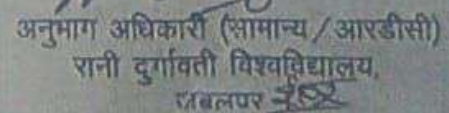 अनुभाग अधिकारी (सामान्य / आरडीसी)
रानी दुर्गावती विश्वविद्यालय,
जबलपुर